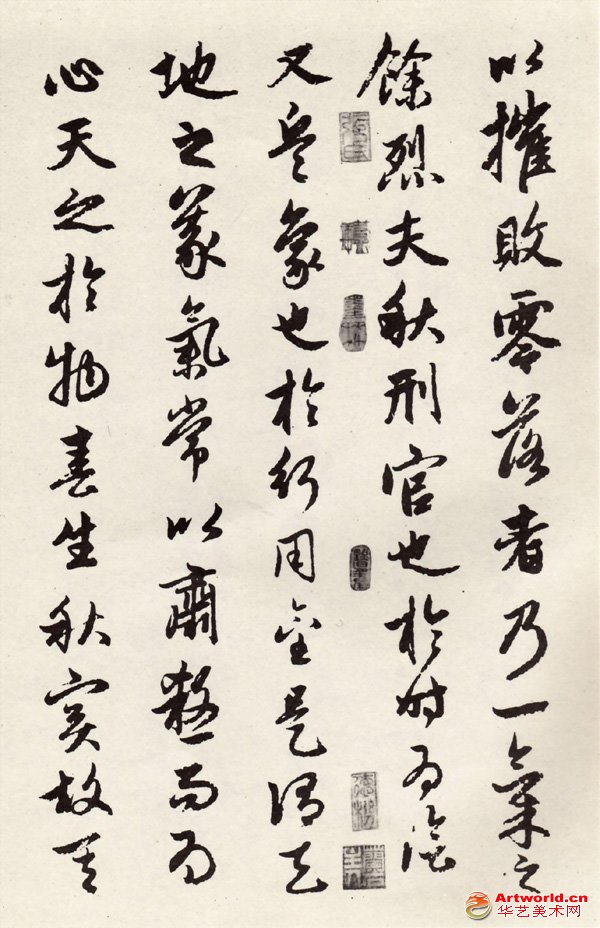 以摧敗零落者乃一氣之
餘烈夫秋刑官也於時為陰
又兵象也於行用金是謂天
地之義氣常以肅殺而為
心天之於物春生秋實故其
Artworld.cn
华艺美术网